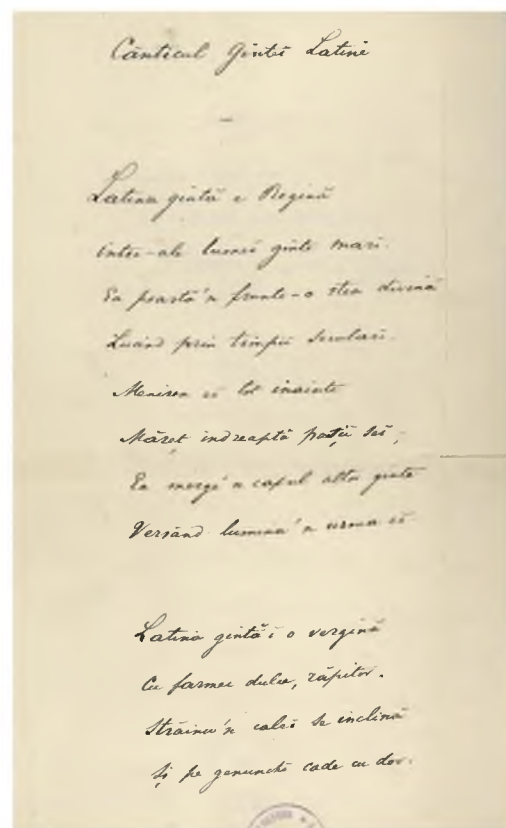 Cânticul Gintei Latine
—
Latina gintă e Regină
Între-ale lumei ginte mari.
Ea poartă'n frunte-o stea divină
Lucind prin timpii seculari.
Menirea ei tot înainte
Măreț îndreaptă pașii sei,
Ea merge'n capul altor ginte
Versând lumina'n urma ei

Latina gintă-i o vergină
Cu farmec dulce, răpitor.
Străinu'n cale-i se inclină
Și pe genunchi cade cu dor.